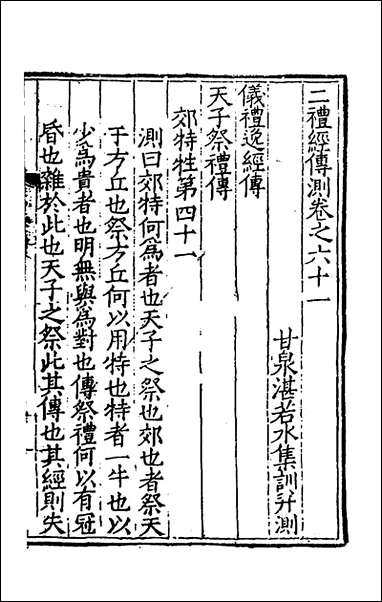 二禮經傳測卷之六十一
甘泉湛若水集訓并測
儀禮逸經傳
天子祭禮傳
郊特牲第四十一
測曰郊特何為者也天子之祭也郊也者祭天
于方丘也祭方丘何以用特也特者一牛也以
少為貴者也明無與為對也傳祭禮何以有冠
昏也雜於此也天子之祭此其傳也其經則失